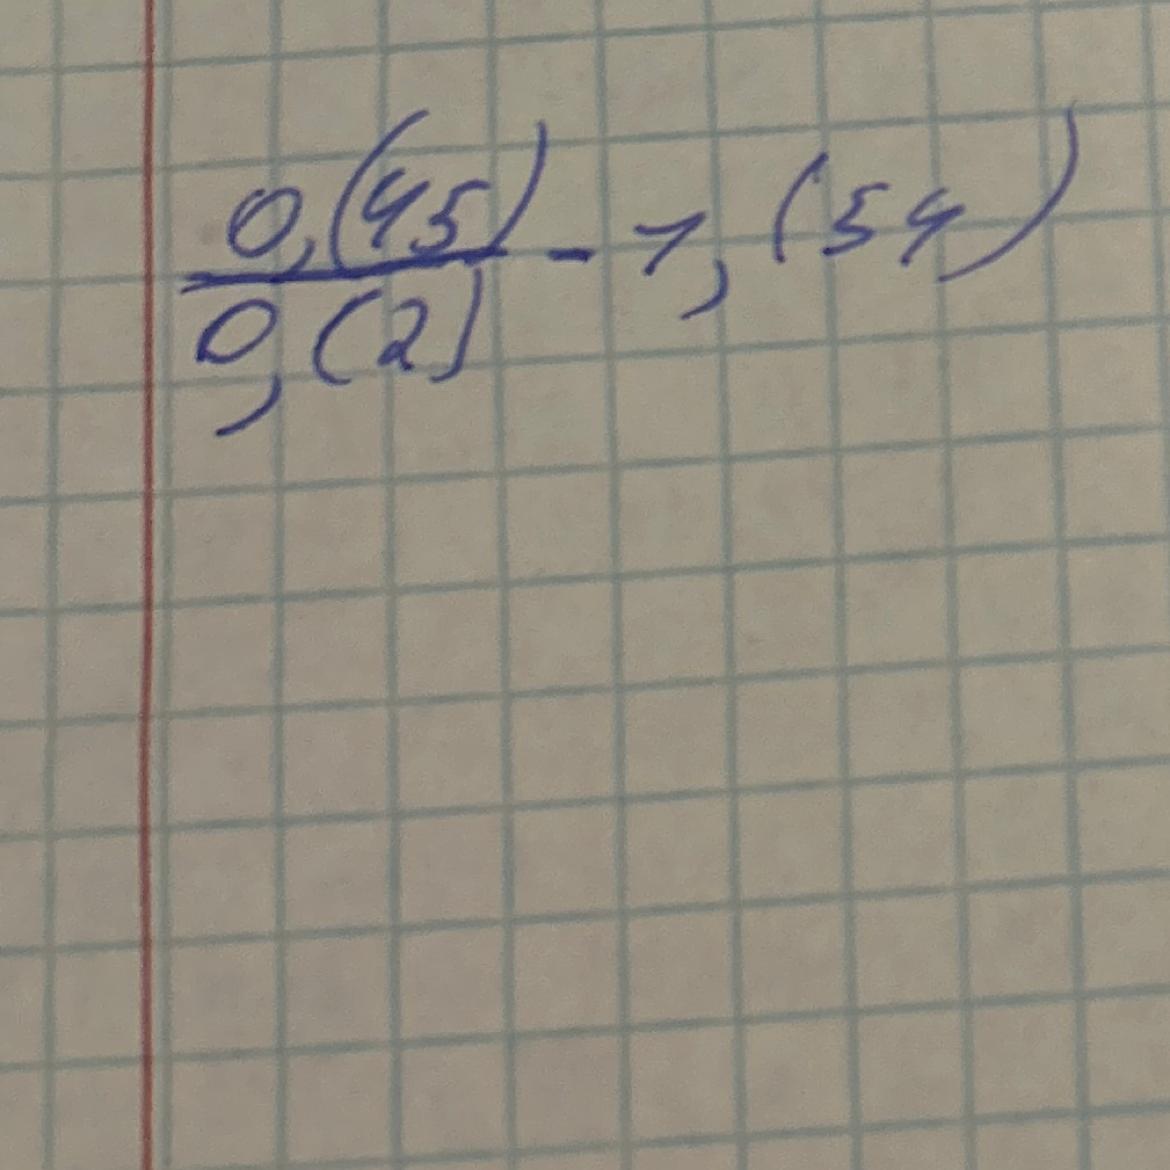 0,(45)
0,(2) - 1,(54)